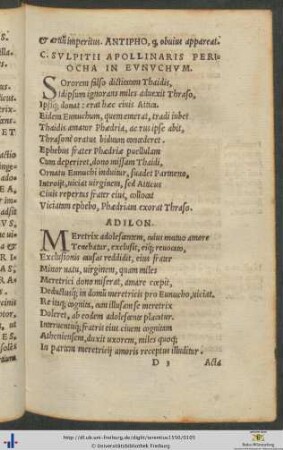 & æris imperitus. ANTIPHO, q, obuius appareat.
C. SVLPITII APOLLINARIS PERI-
OCHA IN EVNVCHVM.
SOrorem falso dictitatam Thaidis,
Id ipsum ignorans miles aduexit Thraso,
Ipsiq; donat: erat hæc ciuis Attica.
Eidem Eunuchum, quem emerat, tradi iubet
Thaidis amator Phædria, ac rus ipse abit,
Thrasoni oratus biduum concederet.
Ephebus frater Phædriæ puellulam
Cum deperiret, dono missam Thaidi,
Ornatu Eunuchi induitur, suadet Parmeno,
Introijt, uitiat uirginem, sed Atticus
Ciuis repertus frater eius, collocat
Vitiatam ephebo, Phædriam exorat Thraso.
ADILON.
MEretrix adolescentem, cuius mutuo amore
Tenebatur, exclusit, eiq; reuocato,
Exclusionis causas reddidit, eius frater
Minor natu, uirginem, quam miles
Meretrici dono miserat, amare cœpit,
Deductusq; in domũ meretricis pro Eunucho, uiciat.
Re itaq; cognita, cum illusam se meretrix
Doleret, ab eodem adolescente placatur.
Interuentuq; fratris eius ciuem cognitam
Atheniensem, duxit uxorem, miles quoq;
In partem meretricij amoris receptus illuditur.
D 3 Acta
http://dl.ub.uni-freiburg.de/diglit/terentius1550/0105
© Universitätsbibliothek Freiburg